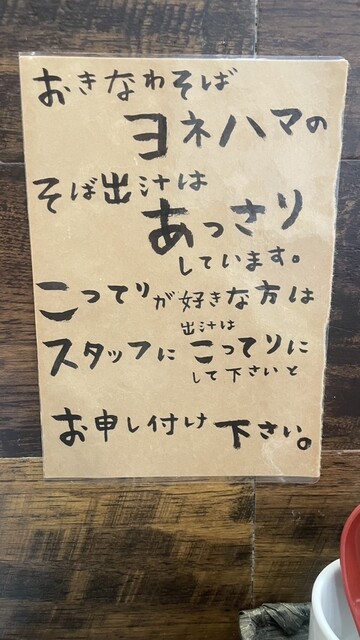 おきなわそば
ヨネハマの
そば出汁は
あっさり
しています。
こってりが好きな方は
出汁は
スタッフに こってりに
して下さいと
お申し付け下さい。